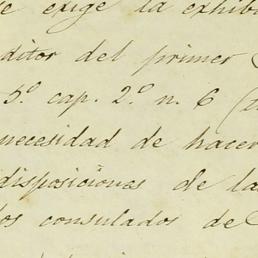 se exige la exhibi
editor del primer
5.º cap. 2.º n. 6
necesidad de hacer
disposiciones de la
los consulados de